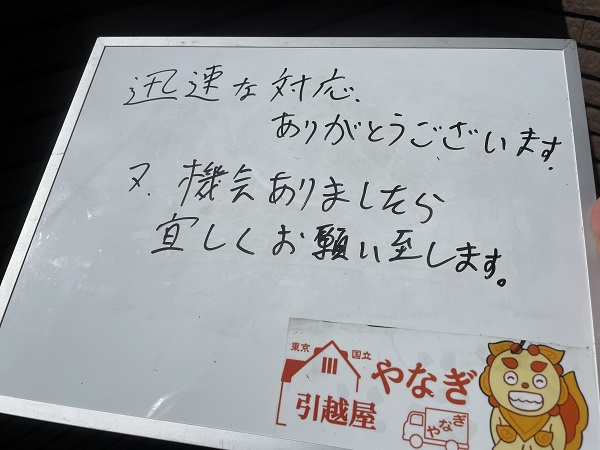 迅速な対応、
ありがとうございます。
又、機会ありましたら
宜しくお願い至します。
東京 国立
やなぎ
引越屋
やなぎ